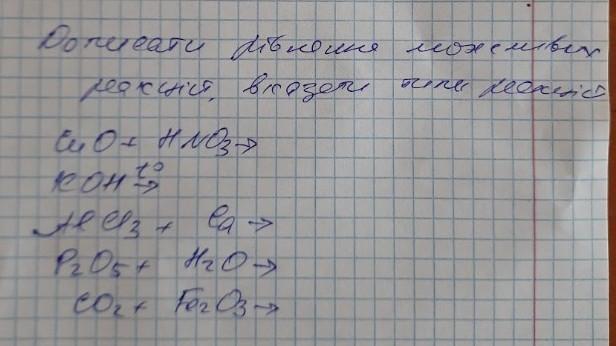 Дописати рівняння можливих
реакцій, вказати типи реакцій
CuO + HNO3 →
KOH t° →
AlCl3 + Ca →
P2O5 + H2O →
CO2 + Fe2O3 →